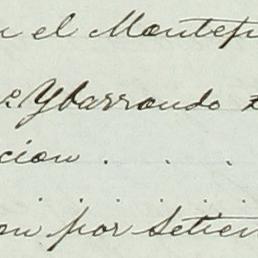 el Montep
Ybarrondo
cion . . .
. . . . . .
on por Setiem